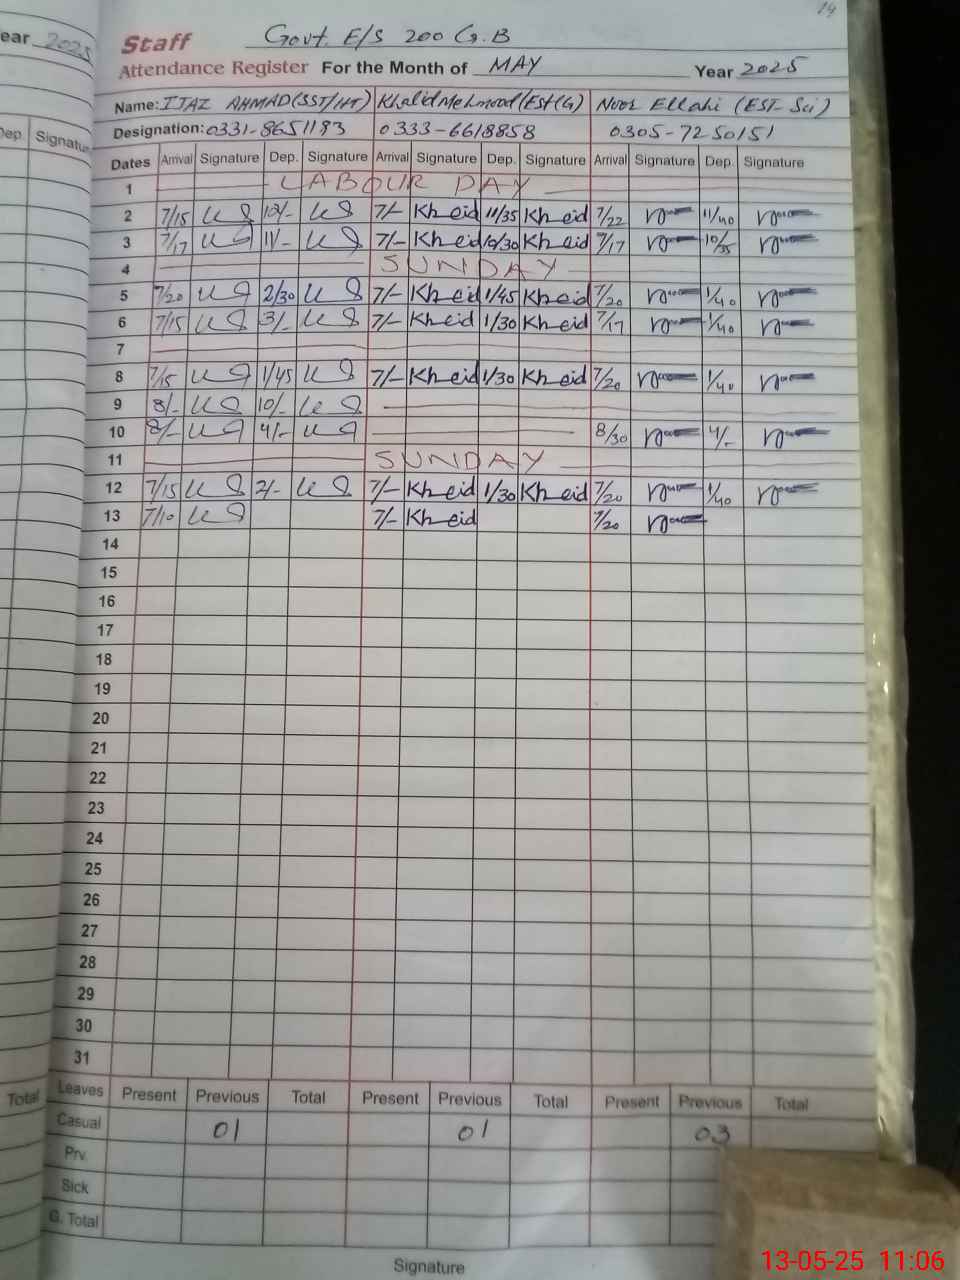 14
ear 2025
Staff Govt. E/S 200 G.B
Attendance Register For the Month of MAY Year 2025
Name: IJAZ AHMAD (SST/HT) Khalid Mehmood (Est(G) Noor Ellahi (EST- Sci)
Designation: 0331-8651183 0333-6618858 0305-7250151
Dep. Signatu
Dates Arrival Signature Dep. Signature Arrival Signature Dep. Signature Arrival Signature Dep. Signature
1 LABOUR DAY
2 7/15 12/- 7/- Kh eid 11/35 Kh eid 7/22 11/40
3 7/17 11/- 7/- Kh eid 10/30 Kh eid 7/17 10/35
4 SUNDAY
5 7/20 2/30 7/- Kh eid 1/45 Kh eid 7/20 1/40
6 7/15 3/- 7/- Kh eid 1/30 Kh eid 7/17 1/40
7
8 7/15 1/45 7/- Kh eid 1/30 Kh eid 7/20 1/40
9 8/- 10/-
10 8/- 4/- 8/30 4/-
11 SUNDAY
12 7/15 2/- 7/- Kh eid 1/30 Kh eid 7/20 1/40
13 7/10 7/- Kh eid 7/20
14
15
16
17
18
19
20
21
22
23
24
25
26
27
28
29
30
31
Total Leaves Present Previous Total Present Previous Total Present Previous Total
Casual 01 01 03
Prv.
Sick
G. Total
Signature
13-05-25 11:06